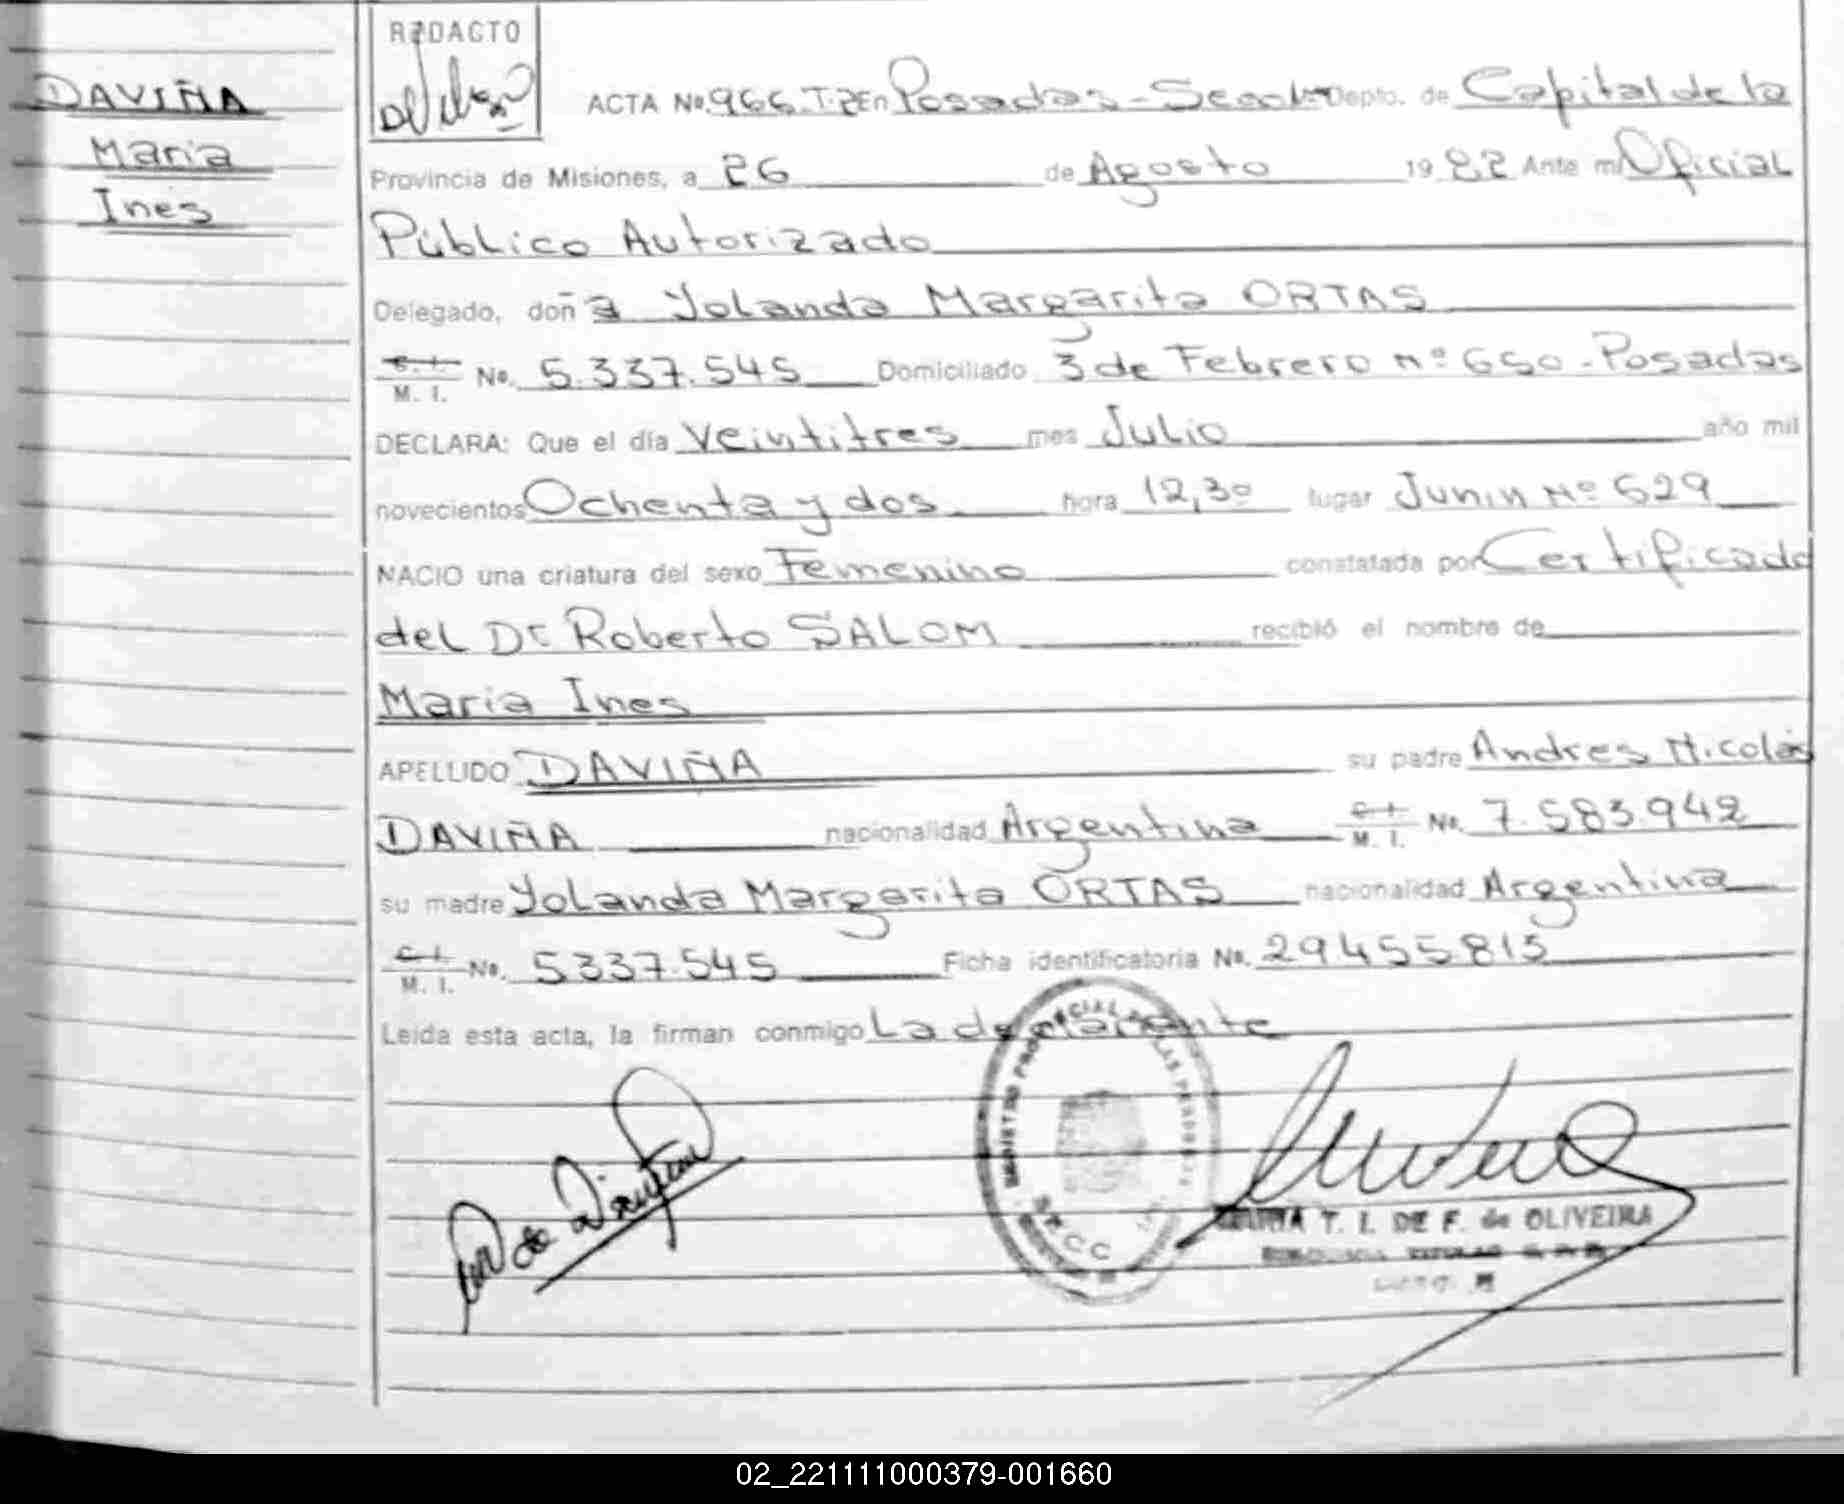 DAVIÑA
Maria
Ines
REDACTO
ACTA No. 966. T. 2 En Posadas - Secc. Depto. de Capital de la
Provincia de Misiones, a 26 de Agosto 1982 Ante mi Oficial
Público Autorizado
Delegado, doña Yolanda Margarita ORTAS
C. I. M. I. No. 5.337.545 Domiciliado 3 de Febrero nº 650 - Posadas
DECLARA: Que el día Veintitres mes Julio año mil
novecientos Ochenta y dos hora 12,30 lugar Junin Nº 629
NACIO una criatura del sexo Femenino constatada por Certificado
del Dr Roberto SALOM recibió el nombre de
Maria Ines
APELLIDO DAVIÑA su padre Andres Nicolás
DAVIÑA nacionalidad Argentina C. I. M. I. No. 7.583.942
su madre Yolanda Margarita ORTAS nacionalidad Argentina
C. I. M. I. No. 5337.545 Ficha identificatoria No. 29455815
Leída esta acta, la firman conmigo La declarante
REGISTRO PROVINCIAL DE LAS PERSONAS
T. I. DE F. de OLIVEIRA
02_221111000379-001660